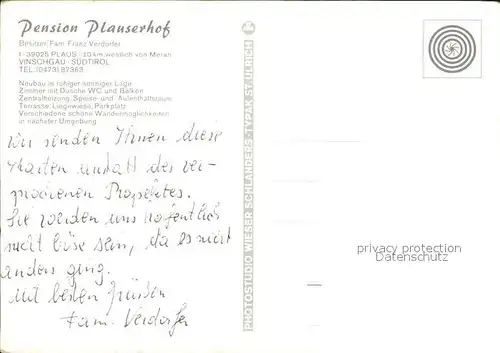 Pension Plauserhof
Besitzer: Fam. Franz Verdorfer
I-39025 PLAUS - 10 km westlich von Meran
VINSCHGAU - SÜDTIROL
TEL. (0473) 87363
Neubau in ruhiger sonniger Lage
Zimmer mit Dusche WC und Balkon
Zentralheizung, Speise- und Aufenthaltsraum
Terrasse, Liegewiese, Parkplatz
Verschiedene schöne Wandermöglichkeiten
in nächster Umgebung
Wir senden Ihnen diese
Karten anstatt des ver-
sprochenen Prospektes.
Sie werden uns hoffentlich
nicht böse sein, da es nicht
anders ging.
Mit besten Grüßen
Fam. Verdorfer
PHOTOSTUDIO WIESER SCHLANDERS - TYPAK ST. ULRICH
privacy protection
Datenschutz